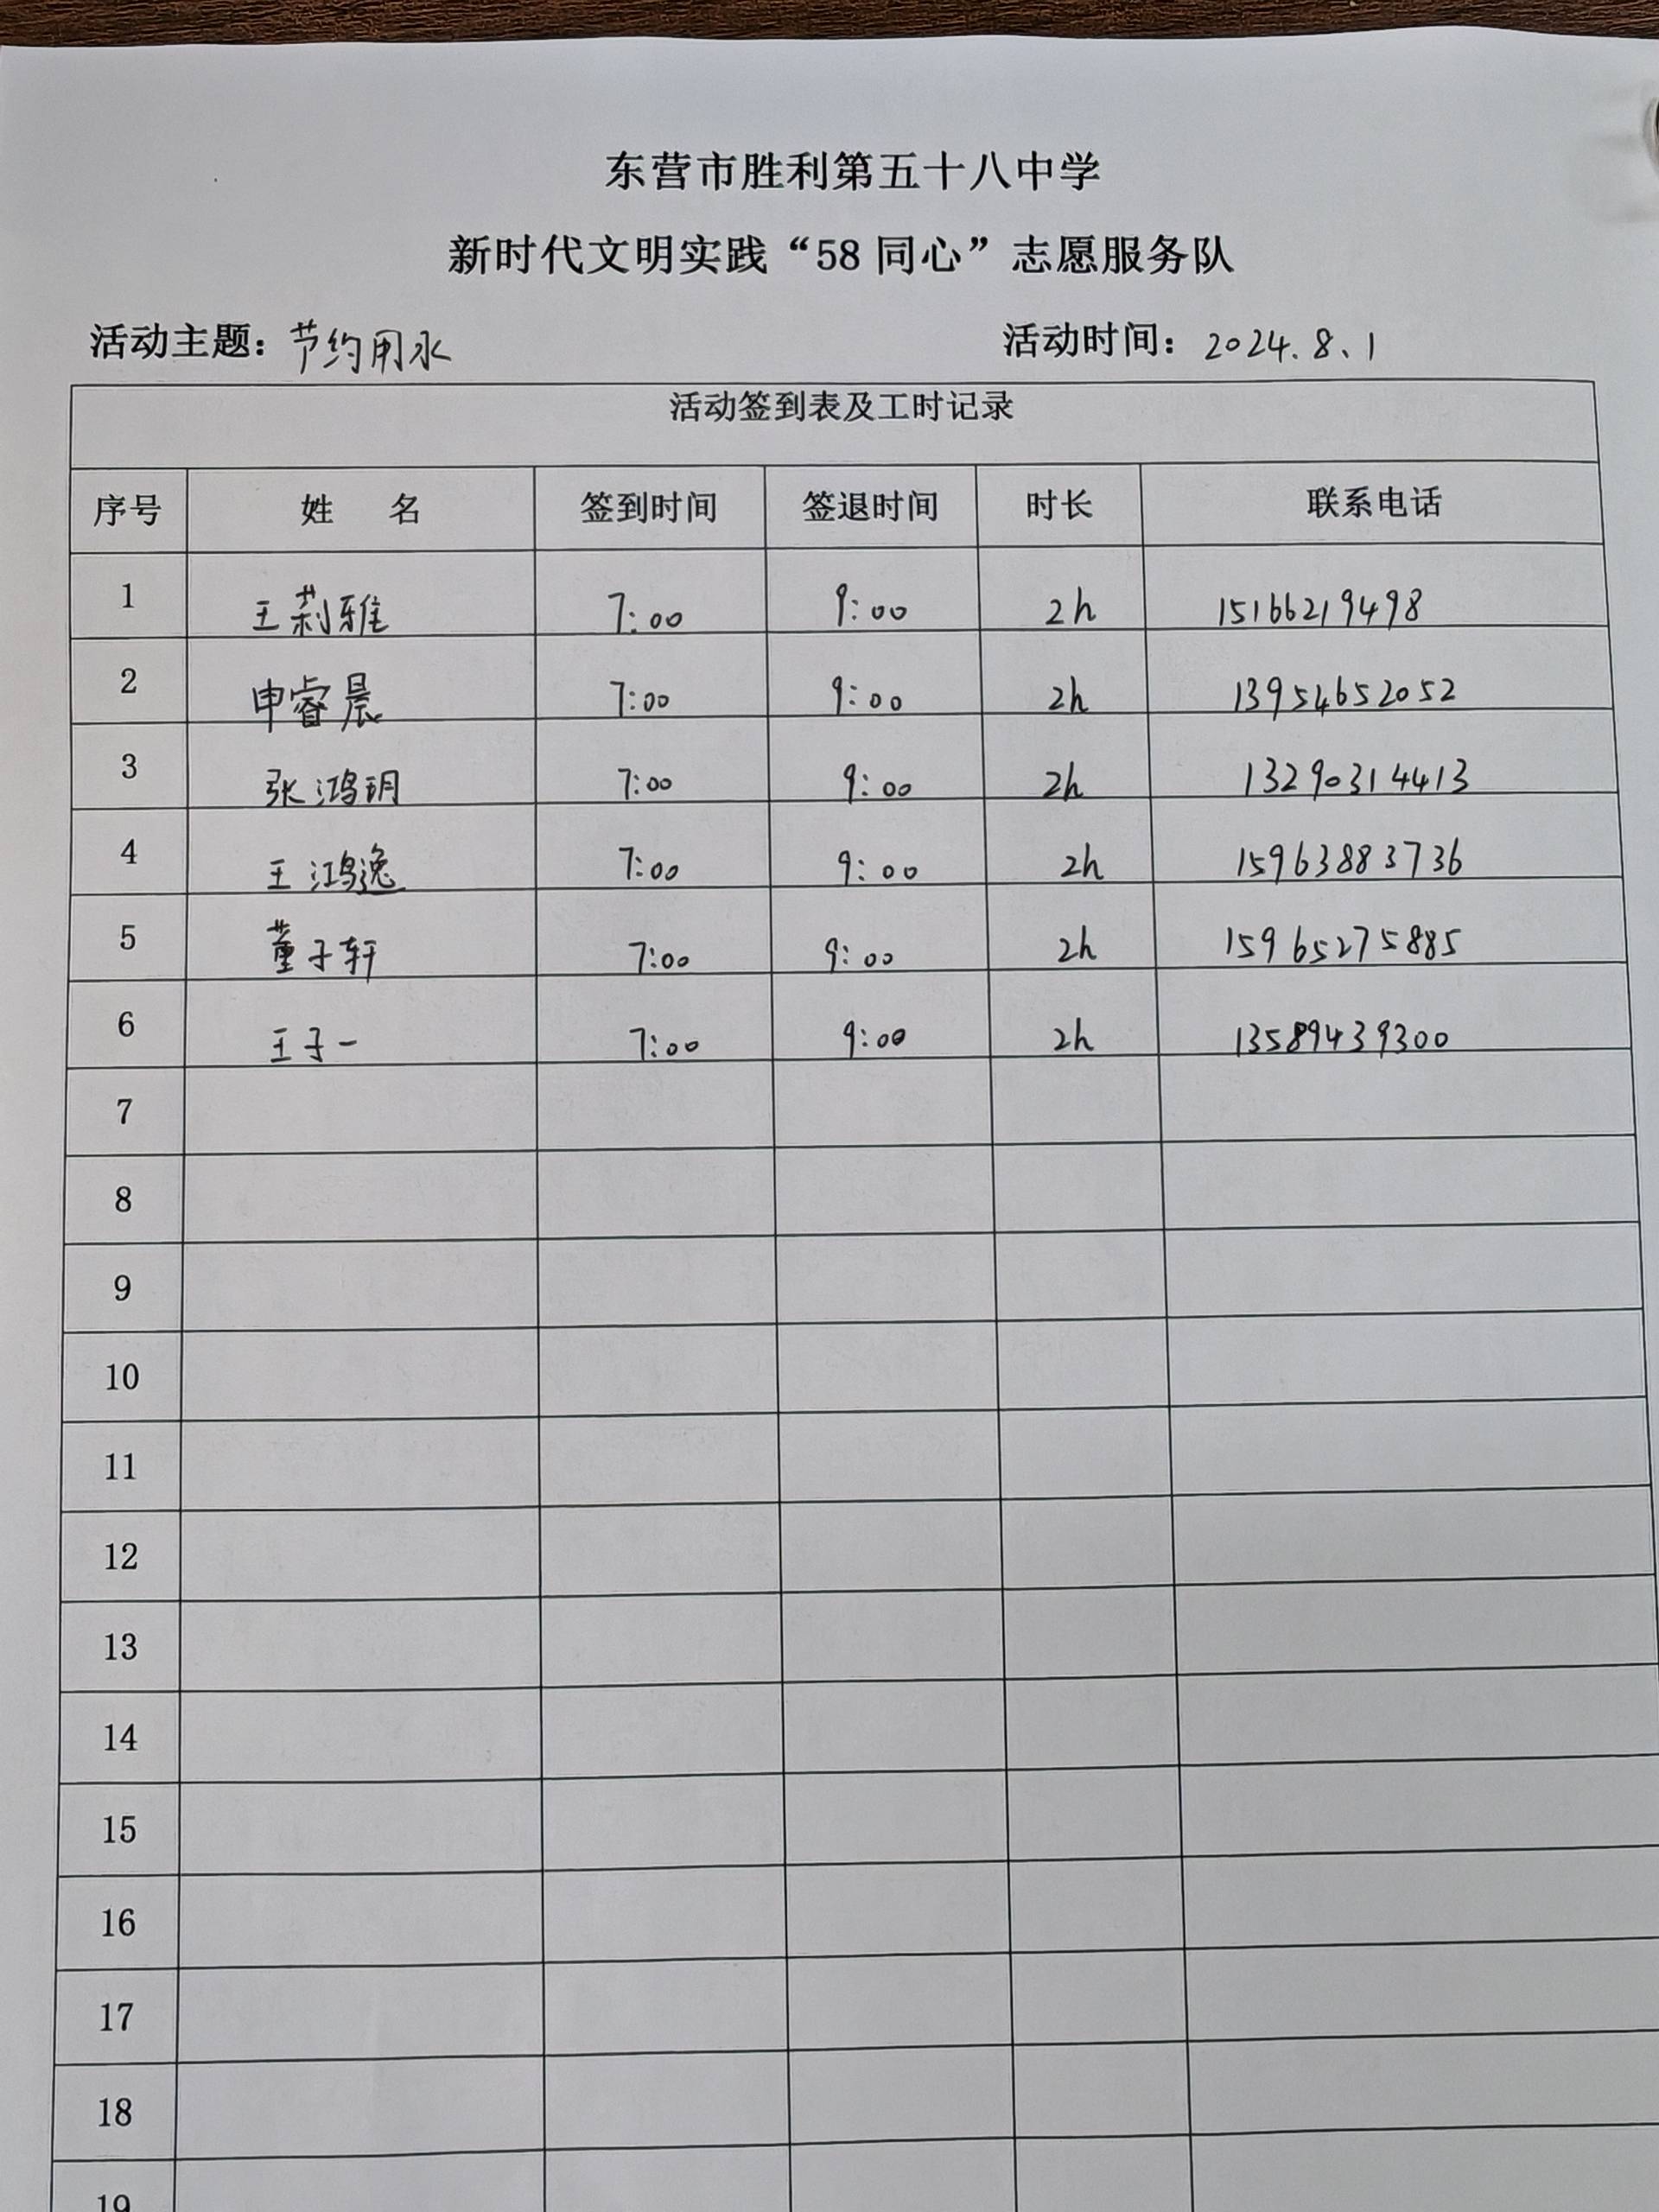 东营市胜利第五十八中学
新时代文明实践“58 同心”志愿服务队
活动主题：节约用水 活动时间：2024.8、1
活动签到表及工时记录
序号 姓 名 签到时间 签退时间 时长 联系电话
1 王莉雅 7:00 9:00 2h 15166219498
2 申睿晨 7:00 9:00 2h 13954652052
3 张鸿玥 7:00 9:00 2h 13290314413
4 王鸿逸 7:00 9:00 2h 15963883736
5 董子轩 7:00 9:00 2h 15965275885
6 王子一 7:00 9:00 2h 13589439300
7
8
9
10
11
12
13
14
15
16
17
18
19